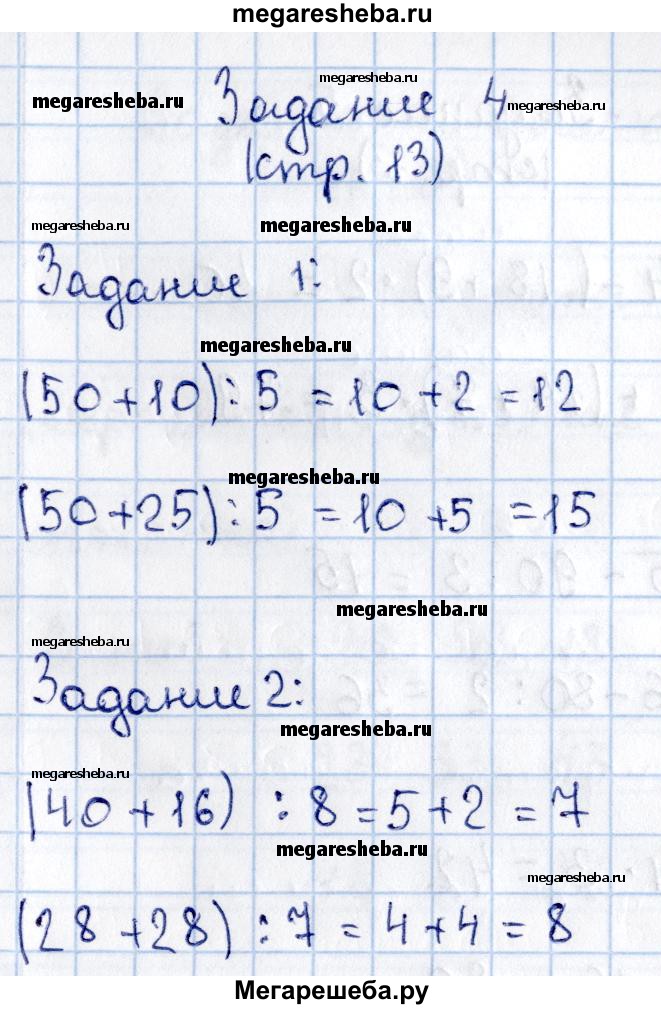 megaresheba.ru
megaresheba.ru
megaresheba.ru
Задание 4
megaresheba.ru
(стр. 13)
megaresheba.ru
megaresheba.ru
Задание 1:
megaresheba.ru
(50+10):5 = 10+2 = 12
megaresheba.ru
(50+25):5 = 10+5 = 15
megaresheba.ru
megaresheba.ru
Задание 2:
megaresheba.ru
megaresheba.ru
(40+16) :8 = 5+2 = 7
megaresheba.ru
megaresheba.ru
(28+28) :7 = 4+4 = 8
Мегарешеба.ру